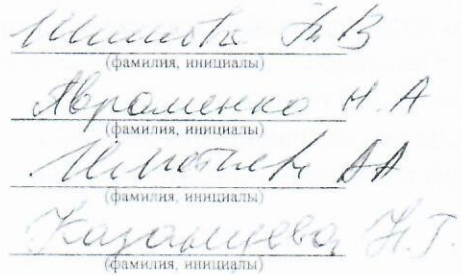 Шишова Н В
(фамилия, инициалы)
Авраменко Н. А
(фамилия, инициалы)
АА
(фамилия, инициалы)
Казанцева Н. Г.
(фамилия, инициалы)